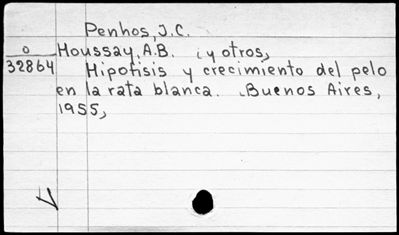 Penhos, J.C.
o Houssay, A.B. ¡y otros,
32864 Hipofisis y crecimiento del pelo
en la rata blanca. Buenos Aires,
1955,